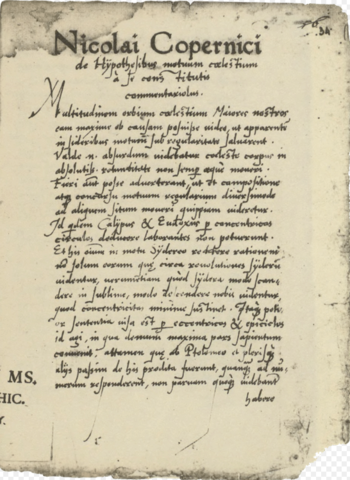 34
Nicolai Copernici
de Hypothesibus motuum cœlestium
à se constitutis
commentariolus.
Multitudinem orbium cœlestium Maiores nostros
eam maxime ob causam posuisse video, ut apparente
in sideribus motum sub regularitate salvarent.
Valde n. absurdum videbatur cœleste corpus in
absolutiss. rotunditate non semp æque moveri.
Fieri aut posse adverterant, ut et compositione
atq concursu motuum regularium diversimode
ad aliquem situm moveri quippiam videretur.
Id qdem Calippus & Eudoxus p concentricos
circulos deducere laborantes non potuerunt
Et his oium in motu sydereo reddere rationem
no solum eorum quæ circa revolutiones syderu
videntur, verumetiam quod sydera modo scan,
dere in sublime, modo descendere nobis videntur,
quod concentricitas minime sustinet. Itaq potior
sententia visa est p eccentricos & epiciclos
id agi, in qua demum maxima pars sapientum
convenit, attamen quæ ab Ptolemeo et plerisq
alijs passim de his prodita fuerunt, quanq ad nu=
merum responderent, non parvam quoq videbant
habere
MS.
HIC.